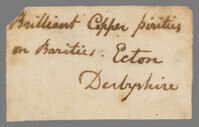 Brilliant Copper pirities
on Barities. Ecton
Derbyshire